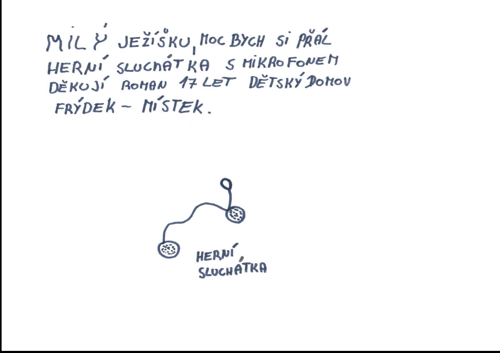 MILÝ JEŽÍŠKU, MOC BYCH SI PŘÁL
HERNÍ SLUCHÁTKA S MIKROFONEM
DĚKUJÍ ROMAN 17 LET DĚTSKÝ DOMOV
FRÝDEK – MÍSTEK.
HERNÍ
SLUCHÁTKA